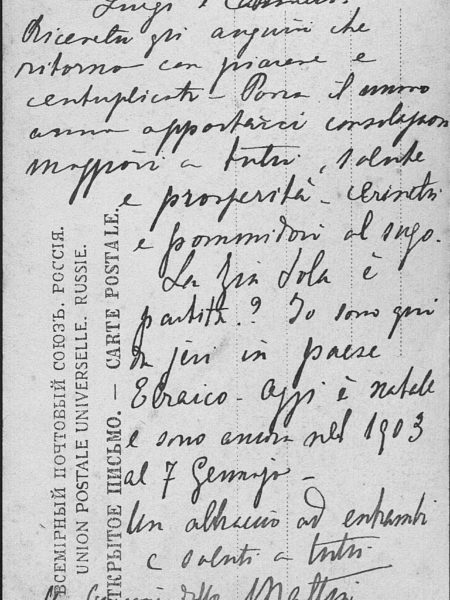 Luigi e
Ricevetti gli auguri che
ritorno con piacere e
centuplicati - Possa il nuovo
anno apportarci consolazioni
maggiori a tutti, salute
e prosperità -
e pommidori al sugo.
La zia Lola è
partita? Io sono qui
da jeri in paese
Ebraico - Oggi è natale
e sono ancora nel 1903
al 7 Gennajo -
Un abbraccio ad entrambi
e saluti a tutti
ВСЕМІРНЫЙ ПОЧТОВЫЙ СОЮЗЪ. РОССІЯ.
UNION POSTALE UNIVERSELLE. RUSSIE.
ОТКРЫТОЕ ПИСЬМО. — CARTE POSTALE.